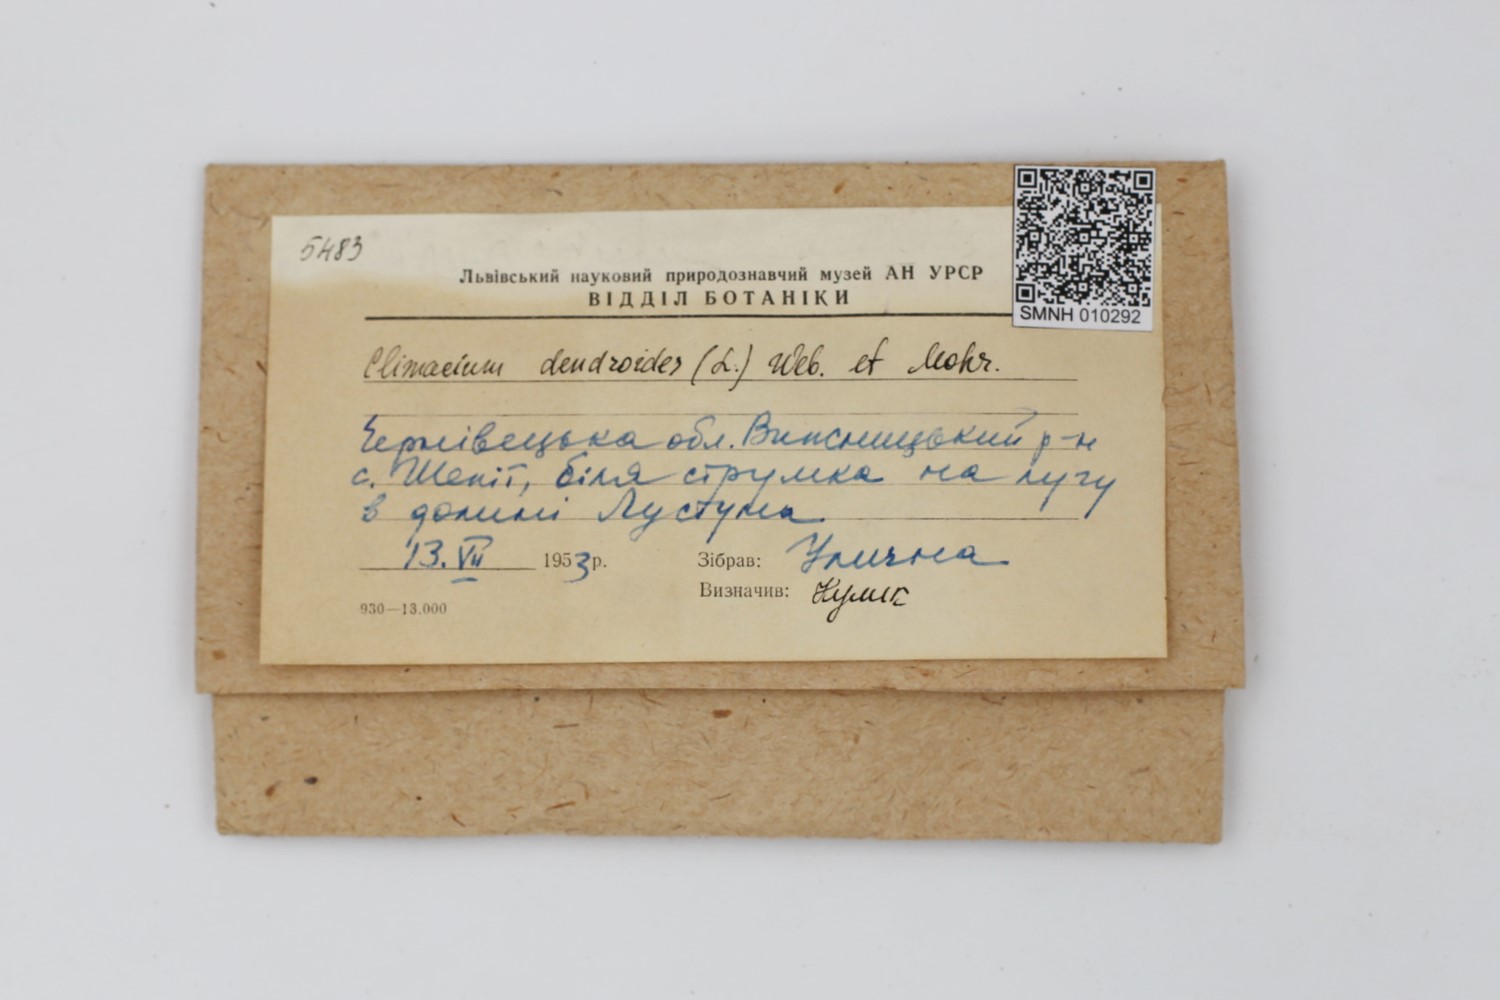 5483
Львівський науковий природознавчий музей АН УРСР
ВІДДІЛ БОТАНІКИ
SMNH 010292
Climacium dendroides (L.) Web. et Mohr.
Чернівецька обл. Вижницький р-н
с. Шепіт, біля струмка на лугу
в долині Лустуна
13.VII 1953 р.
Зібрав: Улична
Визначив:
930—13.000